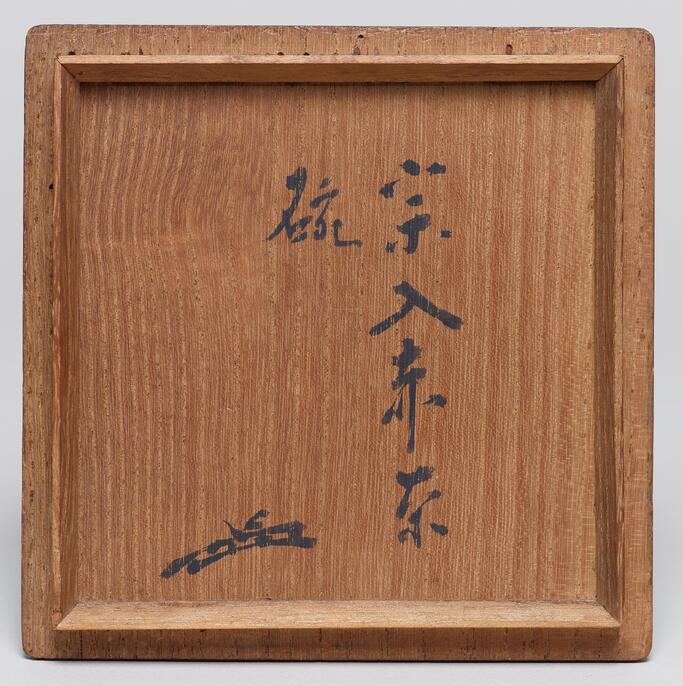 宗入赤茶
碗